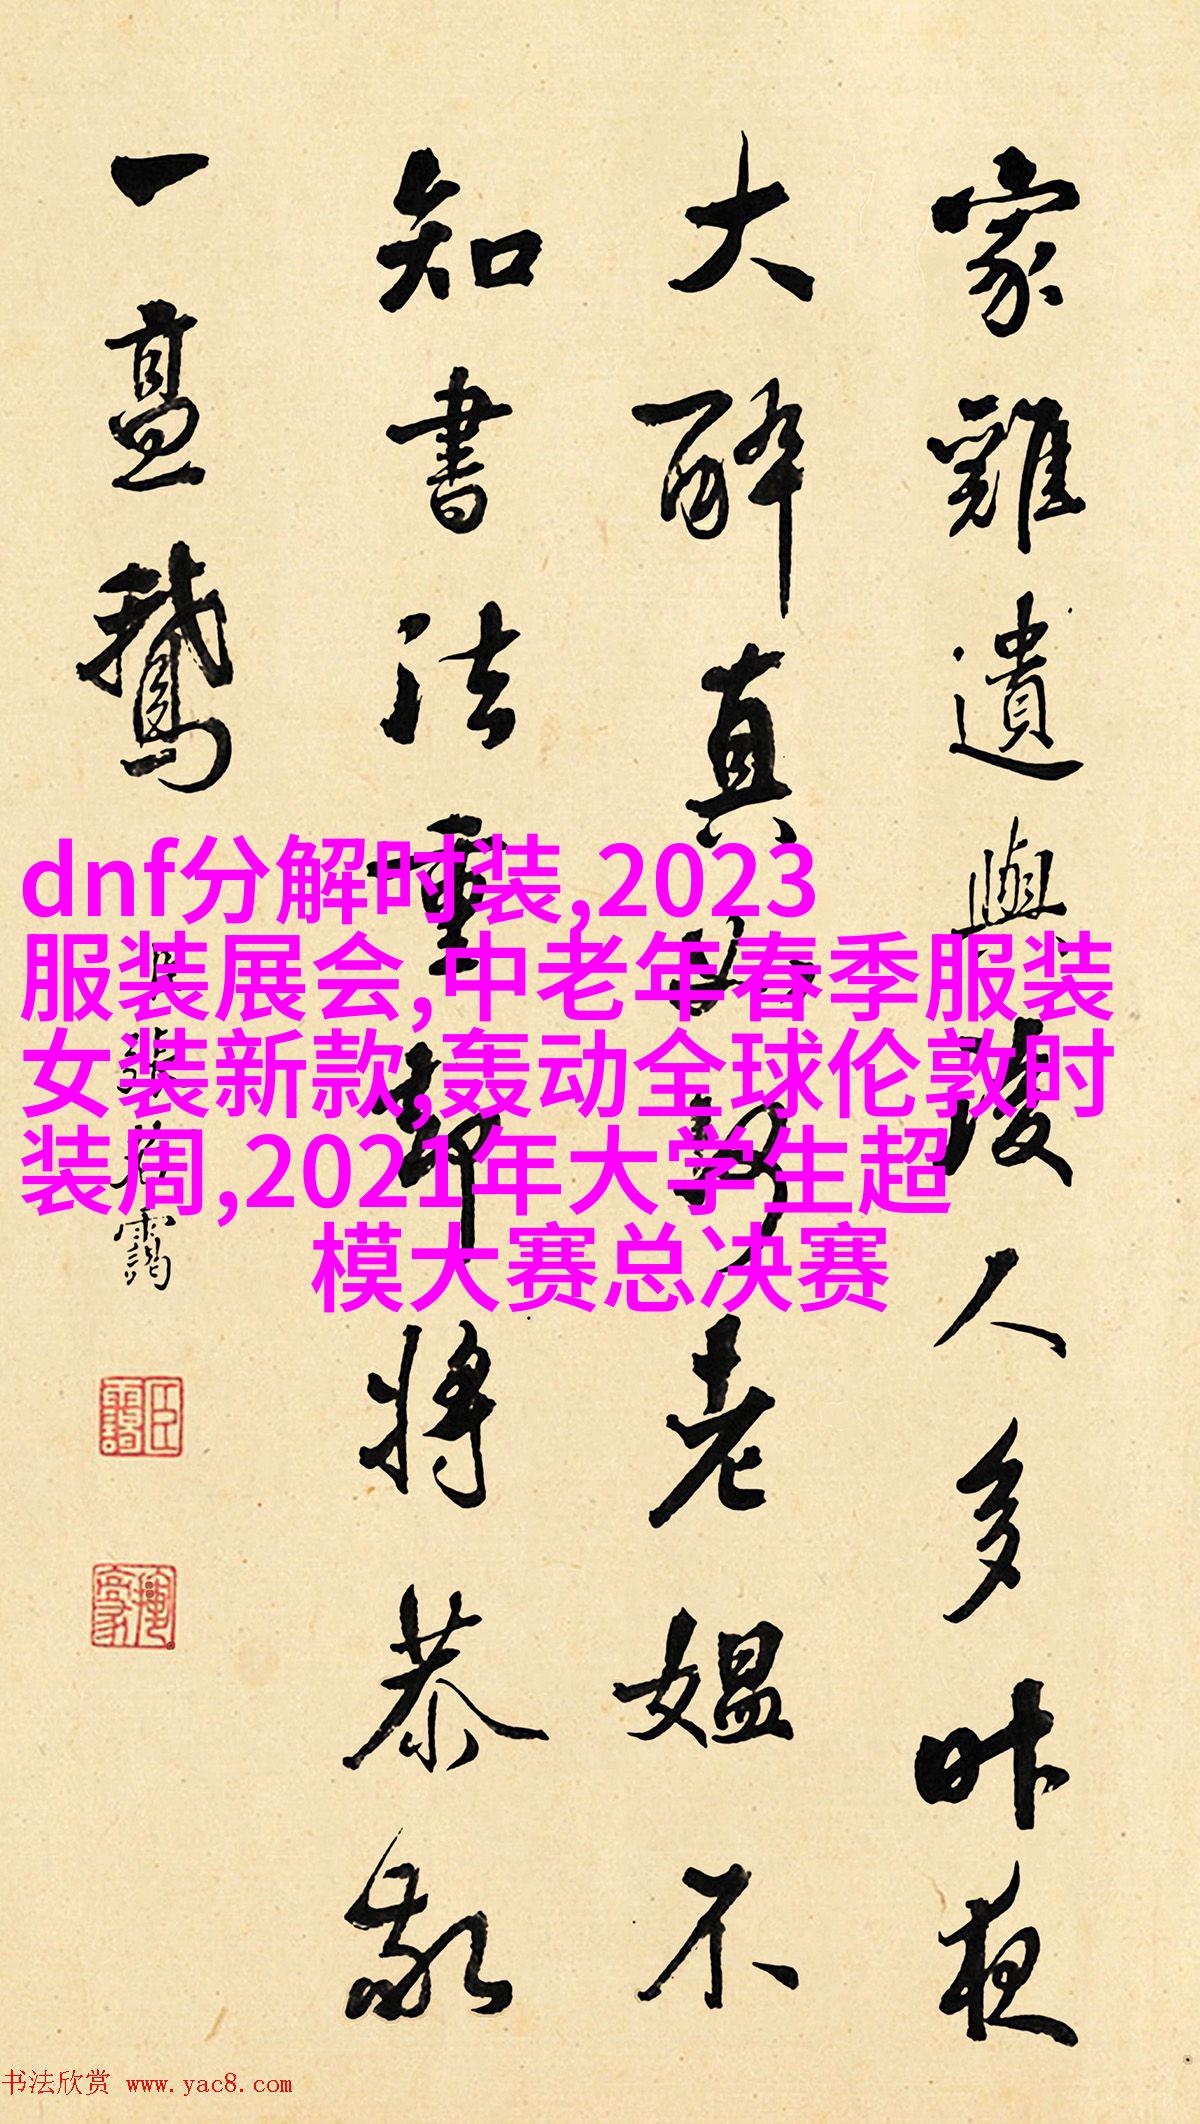 家雞遺與後人多昨夜
大醉真老媼不
知書法重却將恭敬
一鵝
臣張若靄
dnf分解时装,2023
服装展会,中老年春季服装
女装新款,轰动全球伦敦时
装周,2021年大学生超
模大赛总决赛
书法欣赏 www.yac8.com